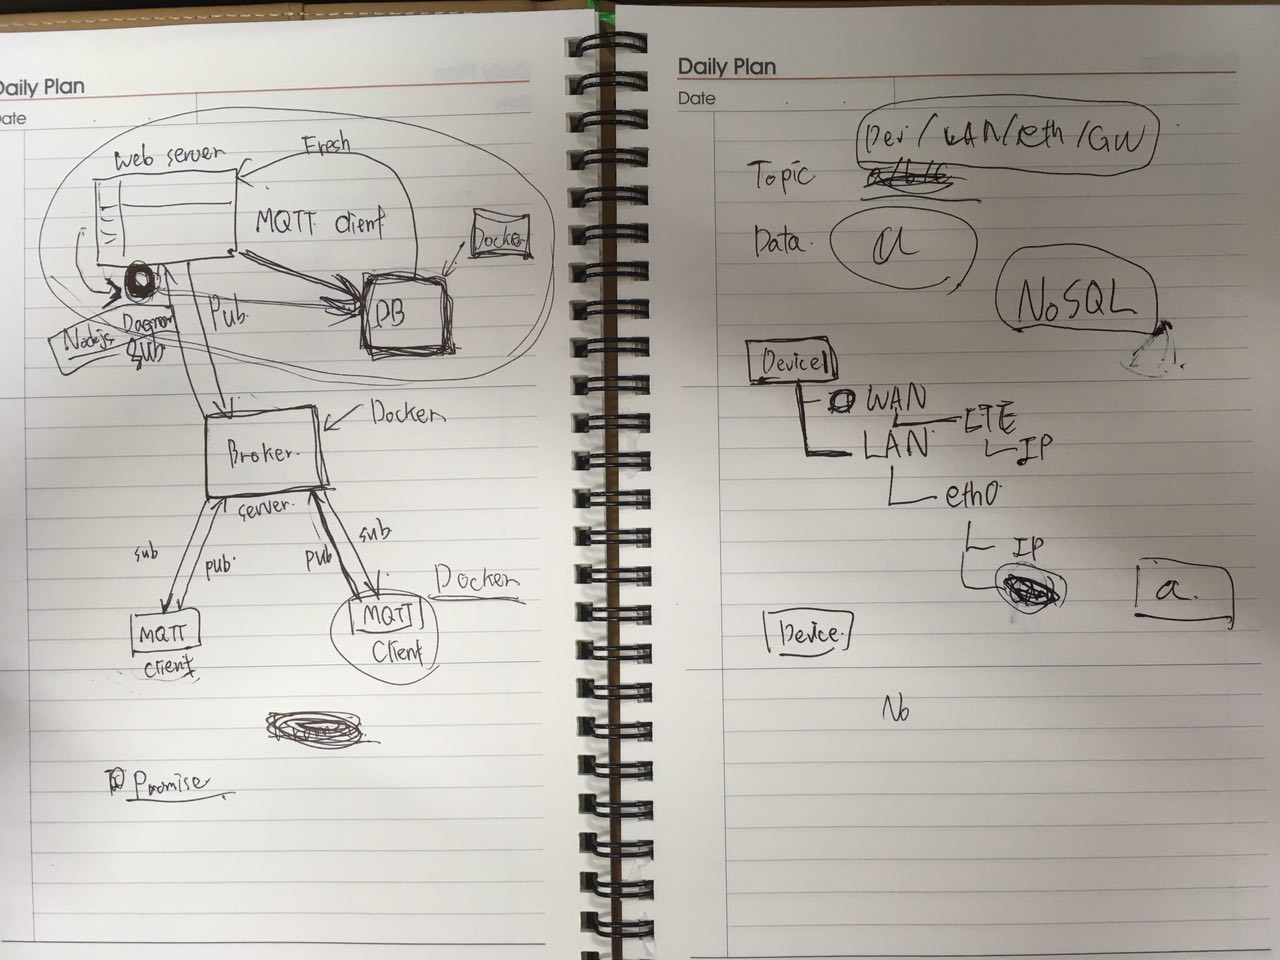 Daily Plan
Date
Web server
Fresh
MQTT client
Docker
DB
Pub
Nodejs
Sub
Docker
Broker
server
sub
pub
pub
sub
Docker
MQTT
client
MQTT
Client
Promise
Daily Plan
Date
Dev/WAN/eth/GW
Topic
Data
a
NoSQL
Device1
WAN
LTE
LAN
IP
eth0
IP
a
Device
No